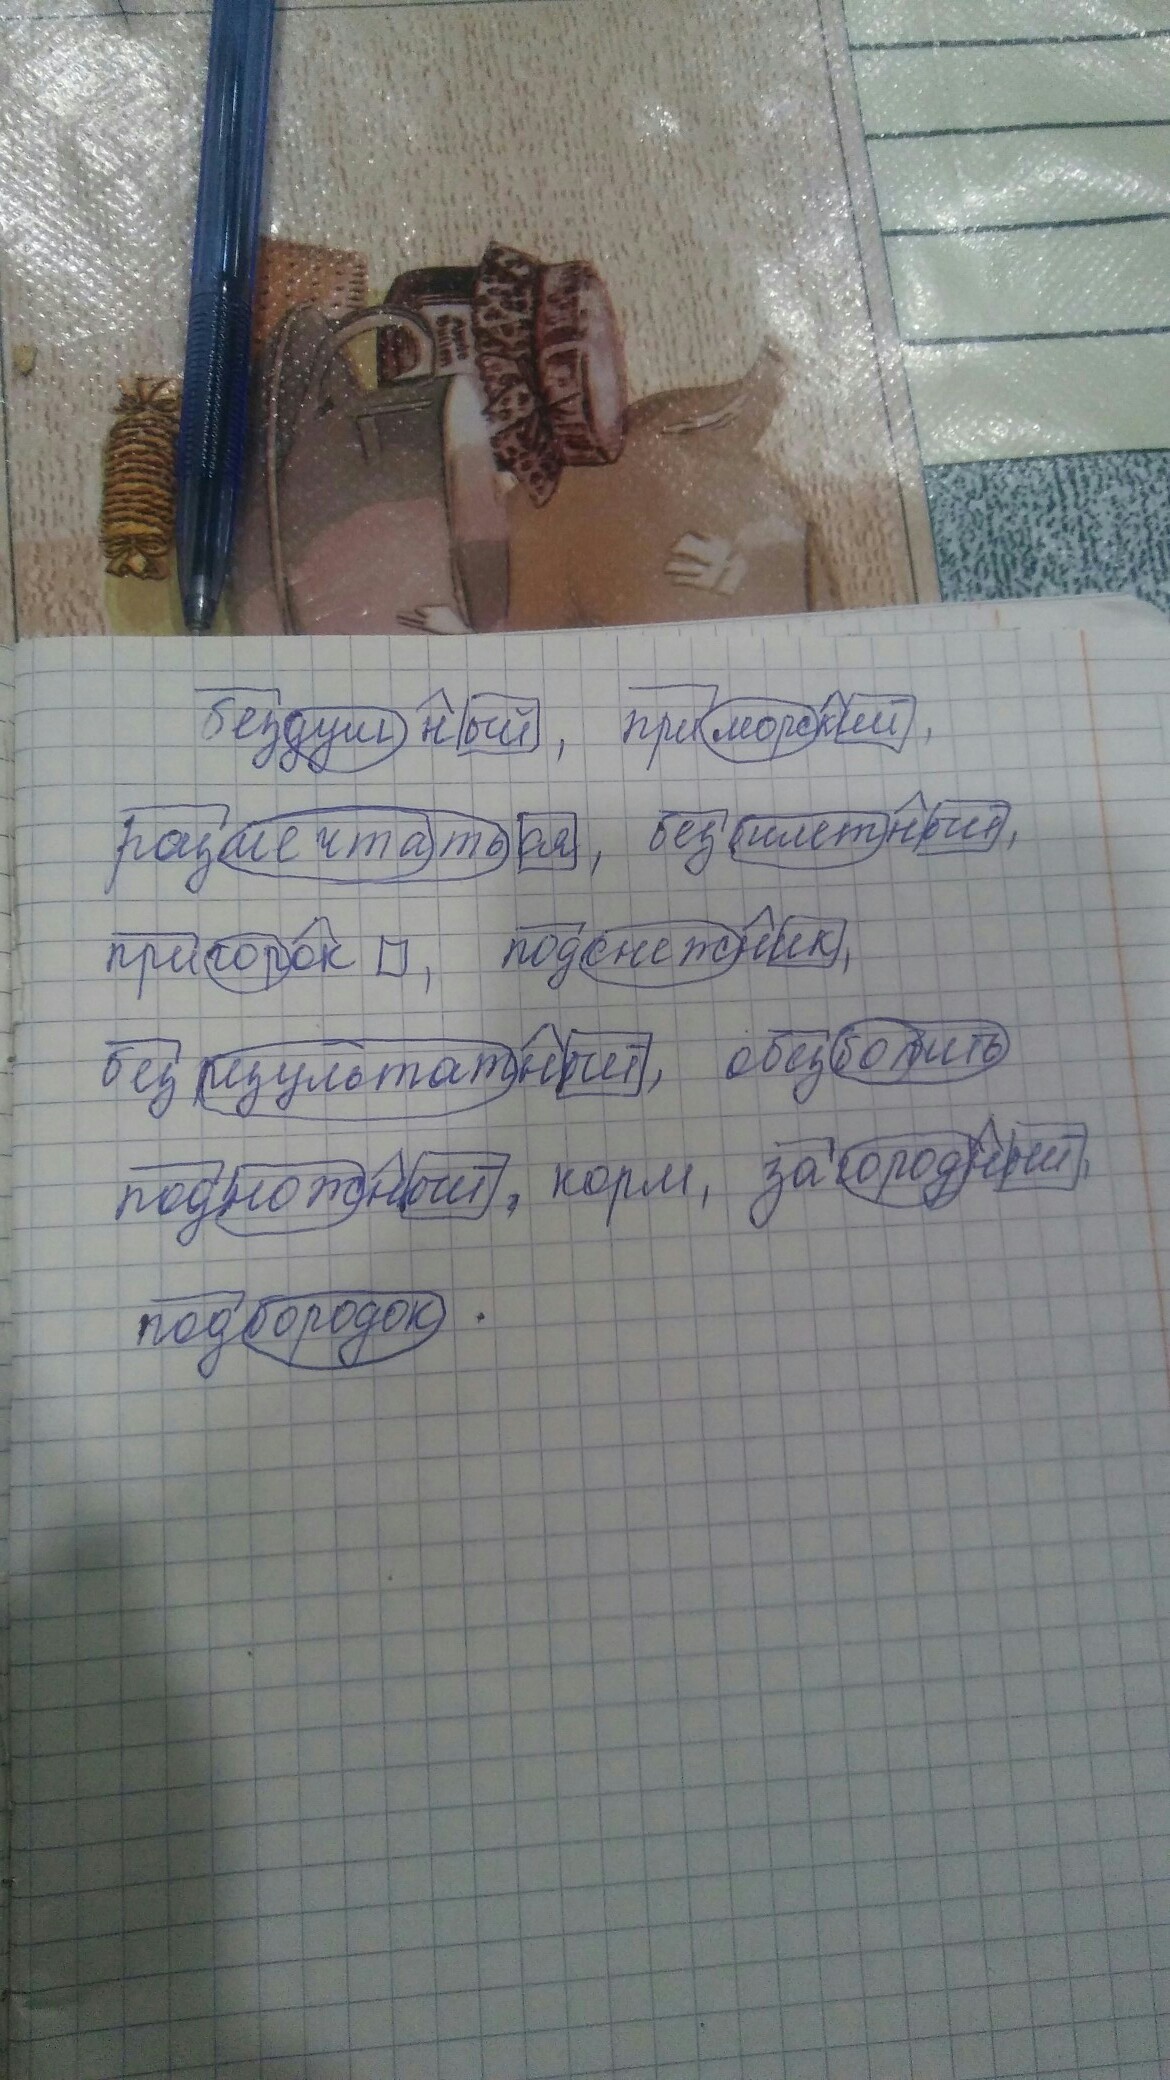 бездушный, приморский,
размечтаться, безбилетный,
пригорок, подснежник,
безрезультатный, обезболить
подножный, корм, загородный,
подбородок.